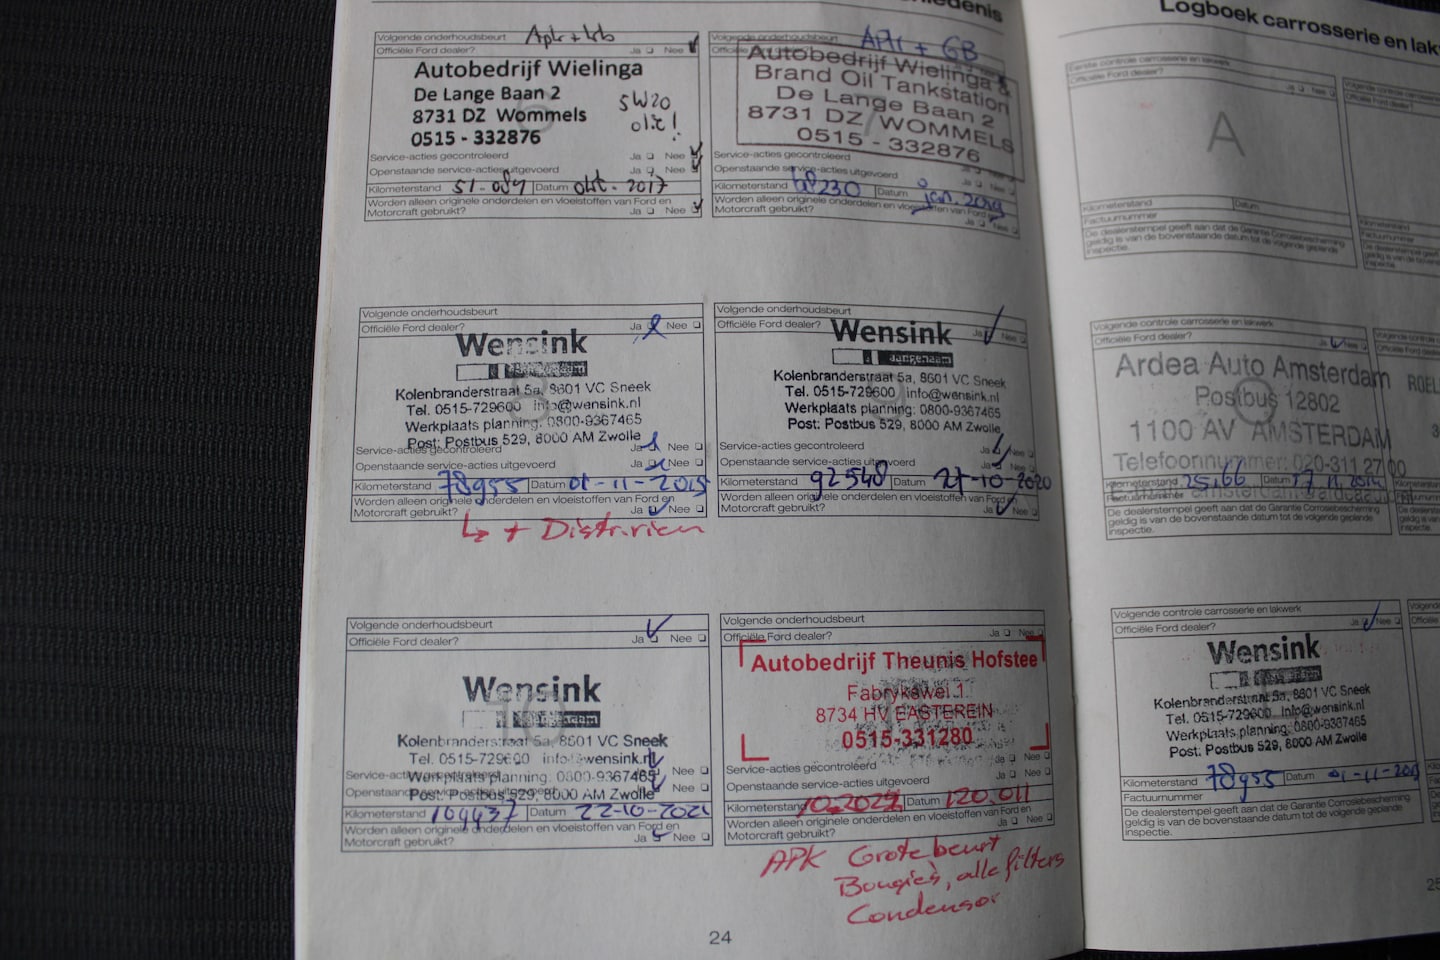 iedenis
Volgende onderhoudsbeurt
Officiële Ford dealer? Ja Nee
Autobedrijf Wielinga
De Lange Baan 2
8731 DZ Wommels
0515 - 332876
5W20
olie!
Service-acties gecontroleerd Ja Nee
Openstaande service-acties uitgevoerd Ja Nee
Kilometerstand 51.084 Datum okt. 2017
Worden alleen originele onderdelen en vloeistoffen van Ford en
Motorcraft gebruikt? Ja Nee
Volgende onderhoudsbeurt APK + GB
Autobedrijf Wielinga &
Brand Oil Tankstation
De Lange Baan 2
8731 DZ WOMMELS
0515 - 332876
Service-acties gecontroleerd
Openstaande service-acties uitgevoerd Ja Nee
Kilometerstand 68230 Datum jan. 2019
Worden alleen originele onderdelen en vloeistoffen van Ford en
Motorcraft gebruikt? Ja Nee
Volgende onderhoudsbeurt
Officiële Ford dealer? Ja Nee
Wensink
aangenaam
Kolenbranderstraat 5a, 8601 VC Sneek
Tel. 0515-729600 info@wensink.nl
Werkplaats planning: 0800-9367465
Post: Postbus 529, 8000 AM Zwolle
Service-acties gecontroleerd Ja Nee
Openstaande service-acties uitgevoerd Ja Nee
Kilometerstand 78955 Datum 01-11-2019
Worden alleen originele onderdelen en vloeistoffen van Ford en
Motorcraft gebruikt? Ja Nee
+ Distr.riem
Volgende onderhoudsbeurt
Officiële Ford dealer? Ja Nee
Wensink
aangenaam
Kolenbranderstraat 5a, 8601 VC Sneek
Tel. 0515-729600 info@wensink.nl
Werkplaats planning: 0800-9367465
Post: Postbus 529, 8000 AM Zwolle
Service-acties gecontroleerd Ja Nee
Openstaande service-acties uitgevoerd Ja Nee
Kilometerstand 92548 Datum 27-10-2020
Worden alleen originele onderdelen en vloeistoffen van Ford en
Motorcraft gebruikt? Ja Nee
Volgende onderhoudsbeurt
Officiële Ford dealer? Ja Nee
Wensink
aangenaam
10
Kolenbranderstraat 5a, 8601 VC Sneek
Tel. 0515-729600 info@wensink.nl
Werkplaats planning: 0800-9367465
Post: Postbus 529, 8000 AM Zwolle
Service-acties gecontroleerd Ja Nee
Openstaande service-acties uitgevoerd Ja Nee
Kilometerstand 109437 Datum 22-10-2021
Worden alleen originele onderdelen en vloeistoffen van Ford en
Motorcraft gebruikt? Ja Nee
Volgende onderhoudsbeurt
Officiële Ford dealer? Ja Nee
Autobedrijf Theunis Hofstee
Fabrykswei 1
8734 HV EASTEREIN
0515-331280
Service-acties gecontroleerd Ja Nee
Openstaande service-acties uitgevoerd Ja Nee
Kilometerstand 10.2022 Datum 120.011
Worden alleen originele onderdelen en vloeistoffen van Ford en
Motorcraft gebruikt? Ja Nee
APK Grote beurt
Bougies, alle filters
Condensor
24
Logboek carrosserie en lak
Eerste controle carrosserie en lakwerk
Officiële Ford dealer? Ja Nee
A
Kilometerstand Datum
Factuurnummer
De dealerstempel geeft aan dat de Garantie Corrosiebescherming
geldig is van de bovenstaande datum tot de volgende geplande
inspectie.
Volgende controle carrosserie en lakwerk
Officiële Ford dealer? Ja Nee
Ardea Auto Amsterdam
Postbus 12802
1100 AV AMSTERDAM
Telefoonnummer: 020-311 27 00
Kilometerstand 25.166 Datum
Factuurnummer
De dealerstempel geeft aan dat de Garantie Corrosiebescherming
geldig is van de bovenstaande datum tot de volgende geplande
inspectie.
Volgende controle carrosserie en lakwerk
Officiële Ford dealer? Ja Nee
Wensink
aangenaam
Kolenbranderstraat 5a, 8601 VC Sneek
Tel. 0515-729600 info@wensink.nl
Werkplaats planning: 0800-9367465
Post: Postbus 529, 8000 AM Zwolle
Kilometerstand 78955 Datum 01-11-2019
Factuurnummer
De dealerstempel geeft aan dat de Garantie Corrosiebescherming
geldig is van de bovenstaande datum tot de volgende geplande
inspectie.
25